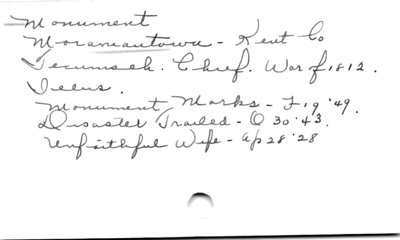 Monument
Moraviantown - Kent Co
Tecumseh. Chief. War of 1812.
Illus.
Monument Marks - F 19 '49.
Disaster Trailed - O 30 '43.
Unfaithful Wife - Ap 28 '28